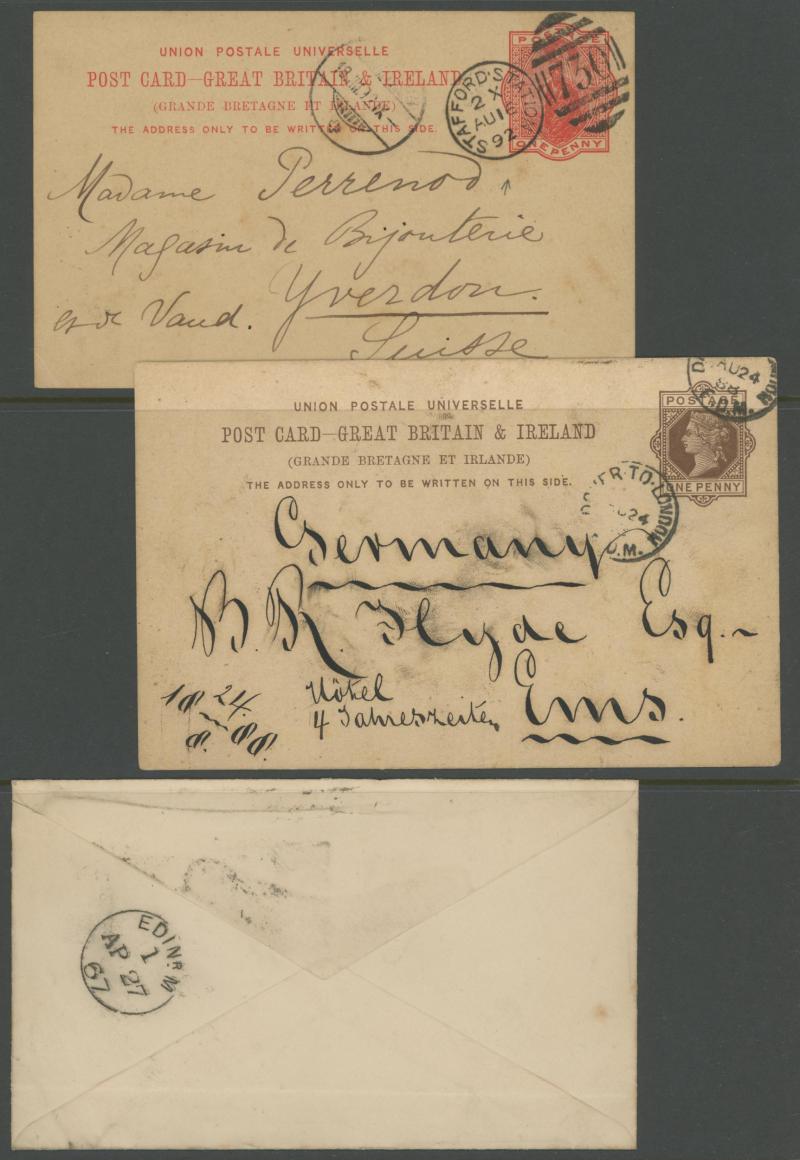 UNION POSTALE UNIVERSELLE
POST CARD—GREAT BRITAIN & IRELAND
(GRANDE BRETAGNE ET IRLANDE)
THE ADDRESS ONLY TO BE WRITTEN ON THIS SIDE.
POSTAGE
ONE PENNY
730
STAFFORD·STATION
2 X
AU 16
92
Madame Perrenod
Magasin de Bijouterie
Yverdon.
Vaud.
Suisse
UNION POSTALE UNIVERSELLE
POST CARD—GREAT BRITAIN & IRELAND
(GRANDE BRETAGNE ET IRLANDE)
THE ADDRESS ONLY TO BE WRITTEN ON THIS SIDE.
POSTAGE
ONE PENNY
AU24
88
DOVER·TO·LONDON
24
Germany
B. R. Hyde Esq.
Hôtel
4 Jahreszeiten
Ems.
18 24. 88.
8.
EDINR. M
1
AP 27
67